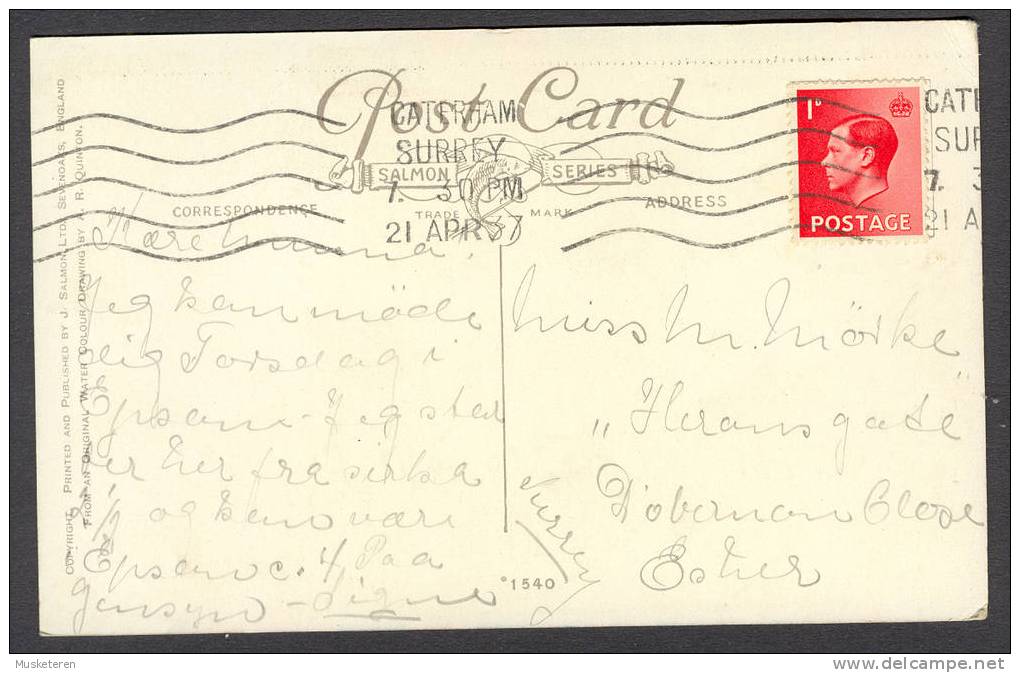 Post Card
CATERHAM
SURREY
7. 30 PM
21 APR 37
SALMON SERIES
TRADE MARK
CORRESPONDENCE
ADDRESS
1D
POSTAGE
CATE
SUR
7. 3
21 A
COPYRIGHT. PRINTED AND PUBLISHED BY J. SALMON LTD. SEVENOAKS, ENGLAND
FROM AN ORIGINAL WATER COLOUR DRAWING BY A. R. QUINTON.
Kære
Jeg kan møde
dig Torsdag i
Epsom - Jeg
er her fra sirka
2 1/2 og kan være
Epsom c. 4 Paa
gensyn - Signe
Miss M. Mörke
"Heronsgate"
Close
Esher
Surrey
°1540
Musketeren
delcampe.net